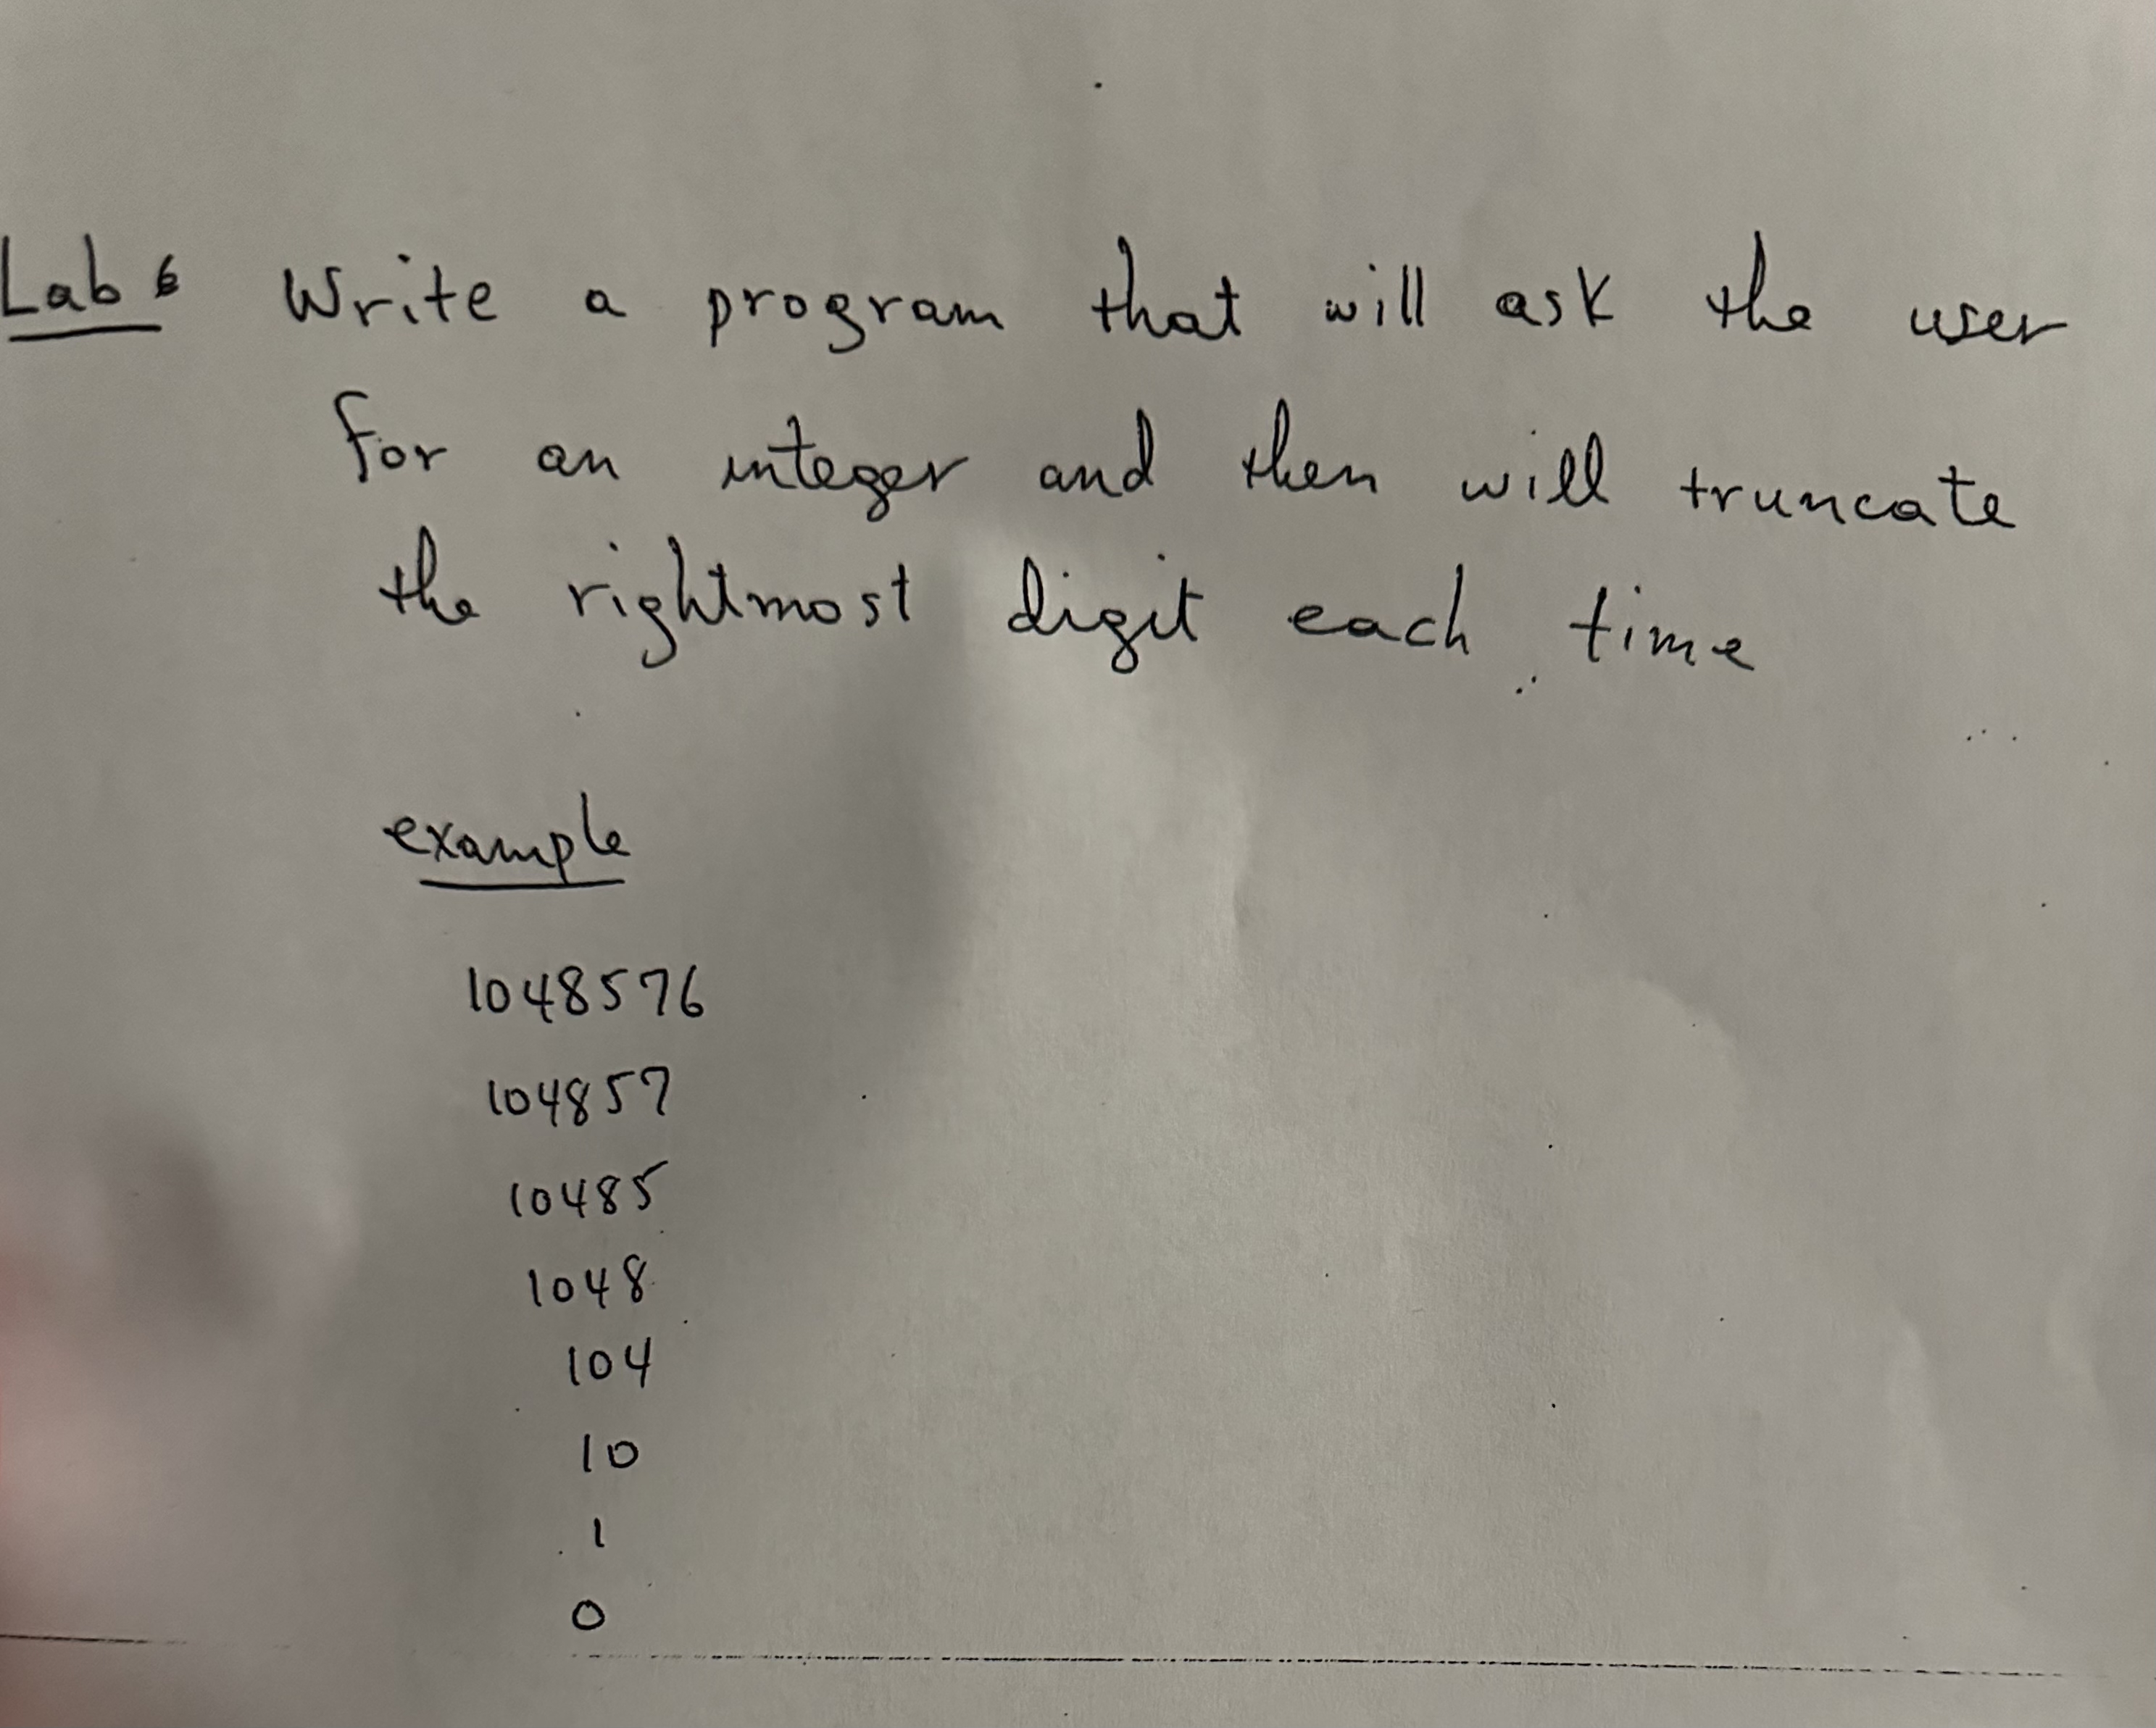 Lab 6 Write a program that will ask the user
for an integer and then will truncate
the rightmost digit each time
example
1048576
104857
10485
1048
104
10
1
0